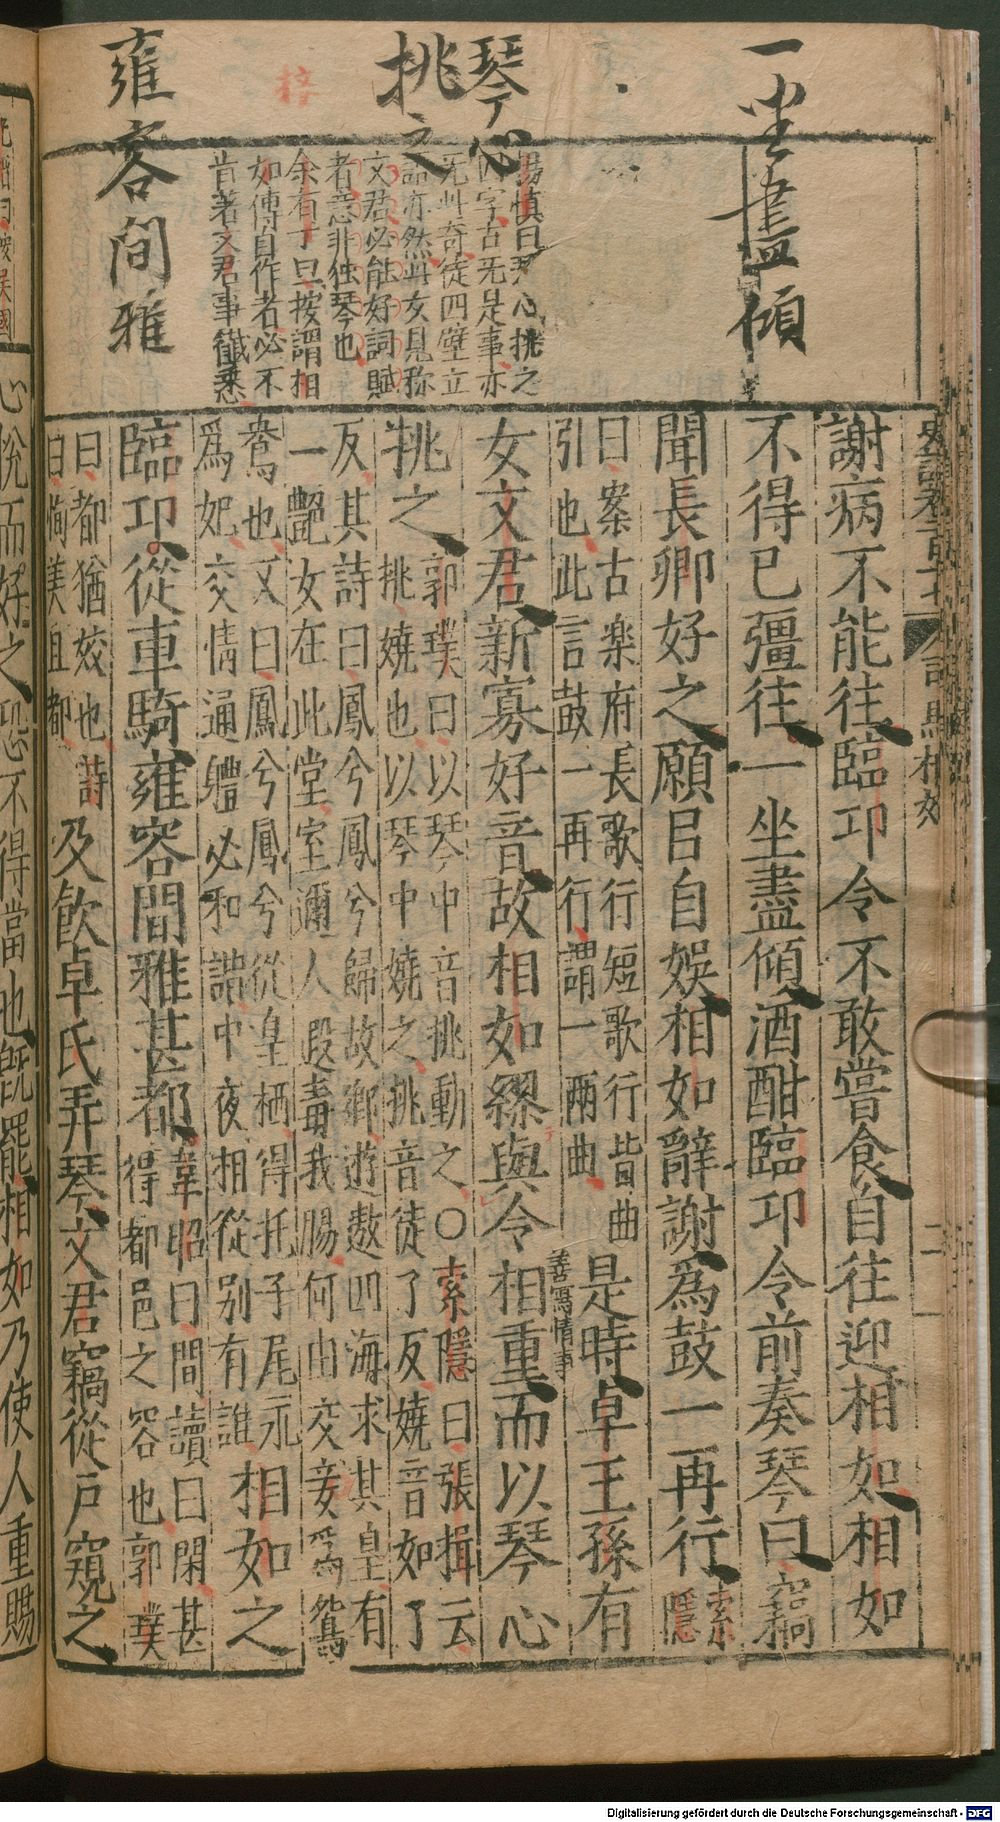 一坐盡傾
琴心
挑之
雍容閒雅
梓
楊慎曰琴心挑之
四字古无是事亦
无此奇徒四壁立
語亦然此女見称
文君必能好詞賦
者意非独琴也
余有丁曰按謂相
如傳自作者必不
肯著文君事
謝病不能往臨邛令不敢嘗食自往迎相如相如
不得已彊往一坐盡傾酒酣臨邛令前奏琴曰竊
聞長卿好之願㠯自娛相如辭謝為鼓一再行索
隱
曰案古楽府長歌行短歌行皆曲
引也此言鼓一再行謂一兩曲
是時卓王孫有
善寫情事
女文君新寡好音故相如繆與令相重而以琴心
挑之
郭璞曰以琴中音挑動之〇索隱曰張揖云
挑嬈也以琴中嬈之挑音徒了反嬈音如了
反其詩曰鳳兮鳳兮歸故鄉遊遨四海求其皇有
一艷女在此堂室邇人遐毒我腸何由交妾為鴛
鴦也又曰鳳兮鳳兮從皇栖得托子尾永
為妃交情通體必和諧中夜相從别有誰
相如之
臨邛從車騎雍容閒雅甚都
韋昭曰間讀曰閑甚
得都邑之容也郭璞
曰都猶姣也詩
曰恂美且都
及飲卓氏弄琴文君竊從戸窺之
心悅而好之恐不得當也既罷相如乃使人重賜
Digitalisierung gefördert durch die Deutsche Forschungsgemeinschaft - DFG